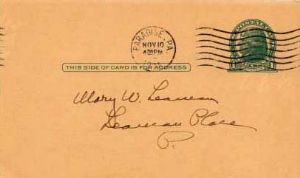 PARADISE, PA.
NOV 10
PM
THIS SIDE OF CARD IS FOR ADDRESS
Mary W. Leaman
Leaman Place
P.